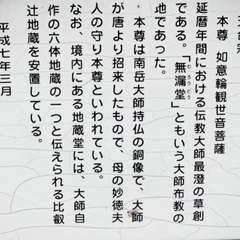 本尊 如意輪観世音菩薩
延暦年間における伝教大師最澄の草創
である。「無漏堂」ともいう大師布教の
むろうどう
地であった。
本尊は南岳大師持仏の銅像で、大師
が唐より招来したもので、母の妙徳夫
人の守り本尊といわれている。
なお、境内にある地蔵堂には、大師自
作の六体地蔵の一つと伝えられる比叡
辻地蔵を安置している。
平成七年三月